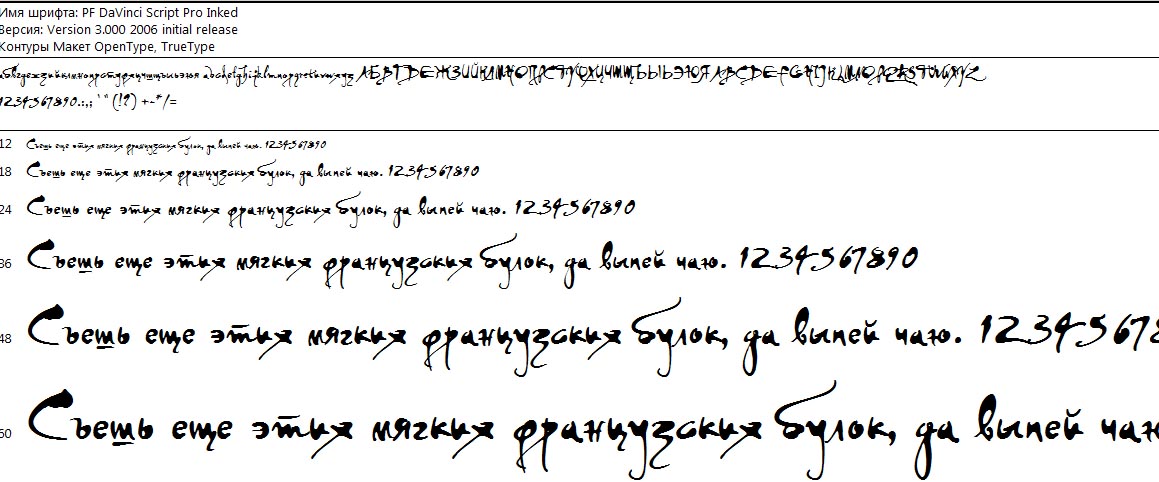 Имя шрифта: PF DaVinci Script Pro Inked
Версия: Version 3.000 2006 initial release
Контуры Макет OpenType, TrueType
абвгдежзийклмнопрстуфхцчшщъыьэюя abcdefghijklmnopqrstuvwxyz АБВГДЕЖЗИЙКЛМНОПРСТУФХЦЧШЩЪЫЬЭЮЯ ABCDEFGHIJKLMNOPQRSTUVWXYZ
1234567890.:,; ' " (!?) +-*/=
12 Съешь еще этих мягких французских булок, да выпей чаю. 1234567890
18 Съешь еще этих мягких французских булок, да выпей чаю. 1234567890
24 Съешь еще этих мягких французских булок, да выпей чаю. 1234567890
36 Съешь еще этих мягких французских булок, да выпей чаю. 1234567890
48 Съешь еще этих мягких французских булок, да выпей чаю. 12345678
60 Съешь еще этих мягких французских булок, да выпей чаю